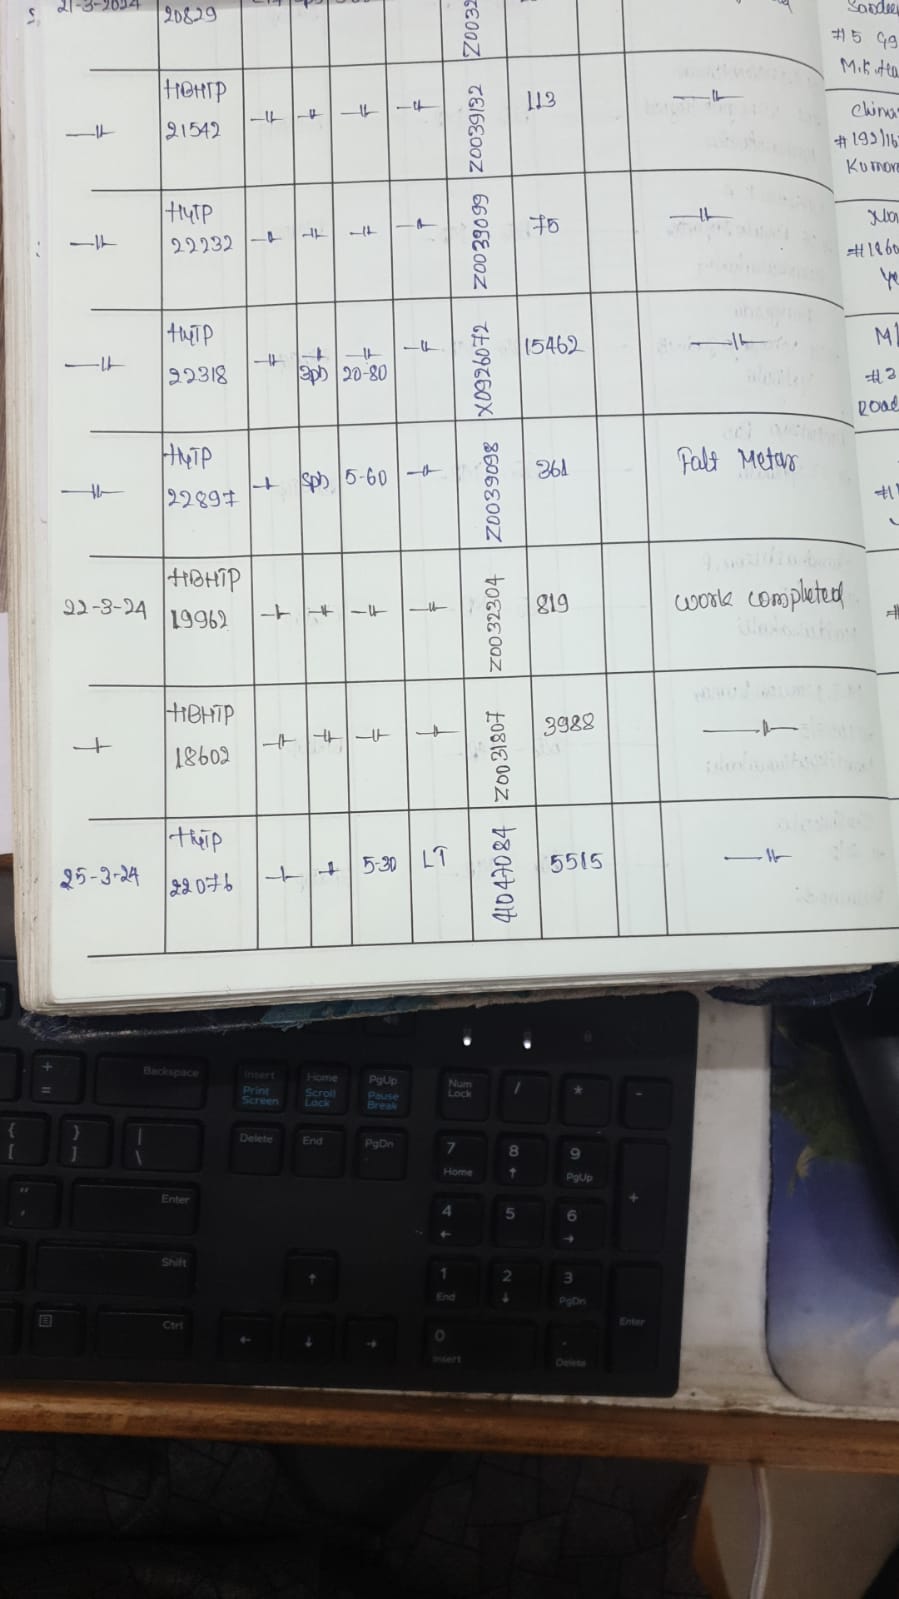 21-3-2024 20829 Z0032
#5
HBHTP
21542 —||— —||— —||— —||— Z0039132 113 —||—
#192/16
HYTP
22232 —||— —||— —||— —||— Z0039099 75 —||—
HYTP
22318 —||— —||— 3ph —||— 20-80 —||— X0926072 15462 —||—
Road
HYTP
22897 —||— Sph 5-60 —||— Z0039098 361 Falt Metar
HBHTP
22-3-24 19962 —||— —||— —||— —||— Z0032304 819 work completed
HBHTP
—||— 18602 —||— —||— —||— —||— Z0031807 3988 —||—
HYTP
25-3-24 22076 —||— —||— 5-30 LT 41047084 5515 —||—
Backspace Insert Print Screen Home Scroll Lock PgUp Pause Break Num Lock / * -
+ =
{ [ } ] | \ Delete End PgDn 7 Home 8 ↑ 9 PgUp +
" ' Enter 4 ← 5 6 →
Shift ↑ 1 End 2 ↓ 3 PgDn Enter
Ctrl ← ↓ → 0 Insert . Delete